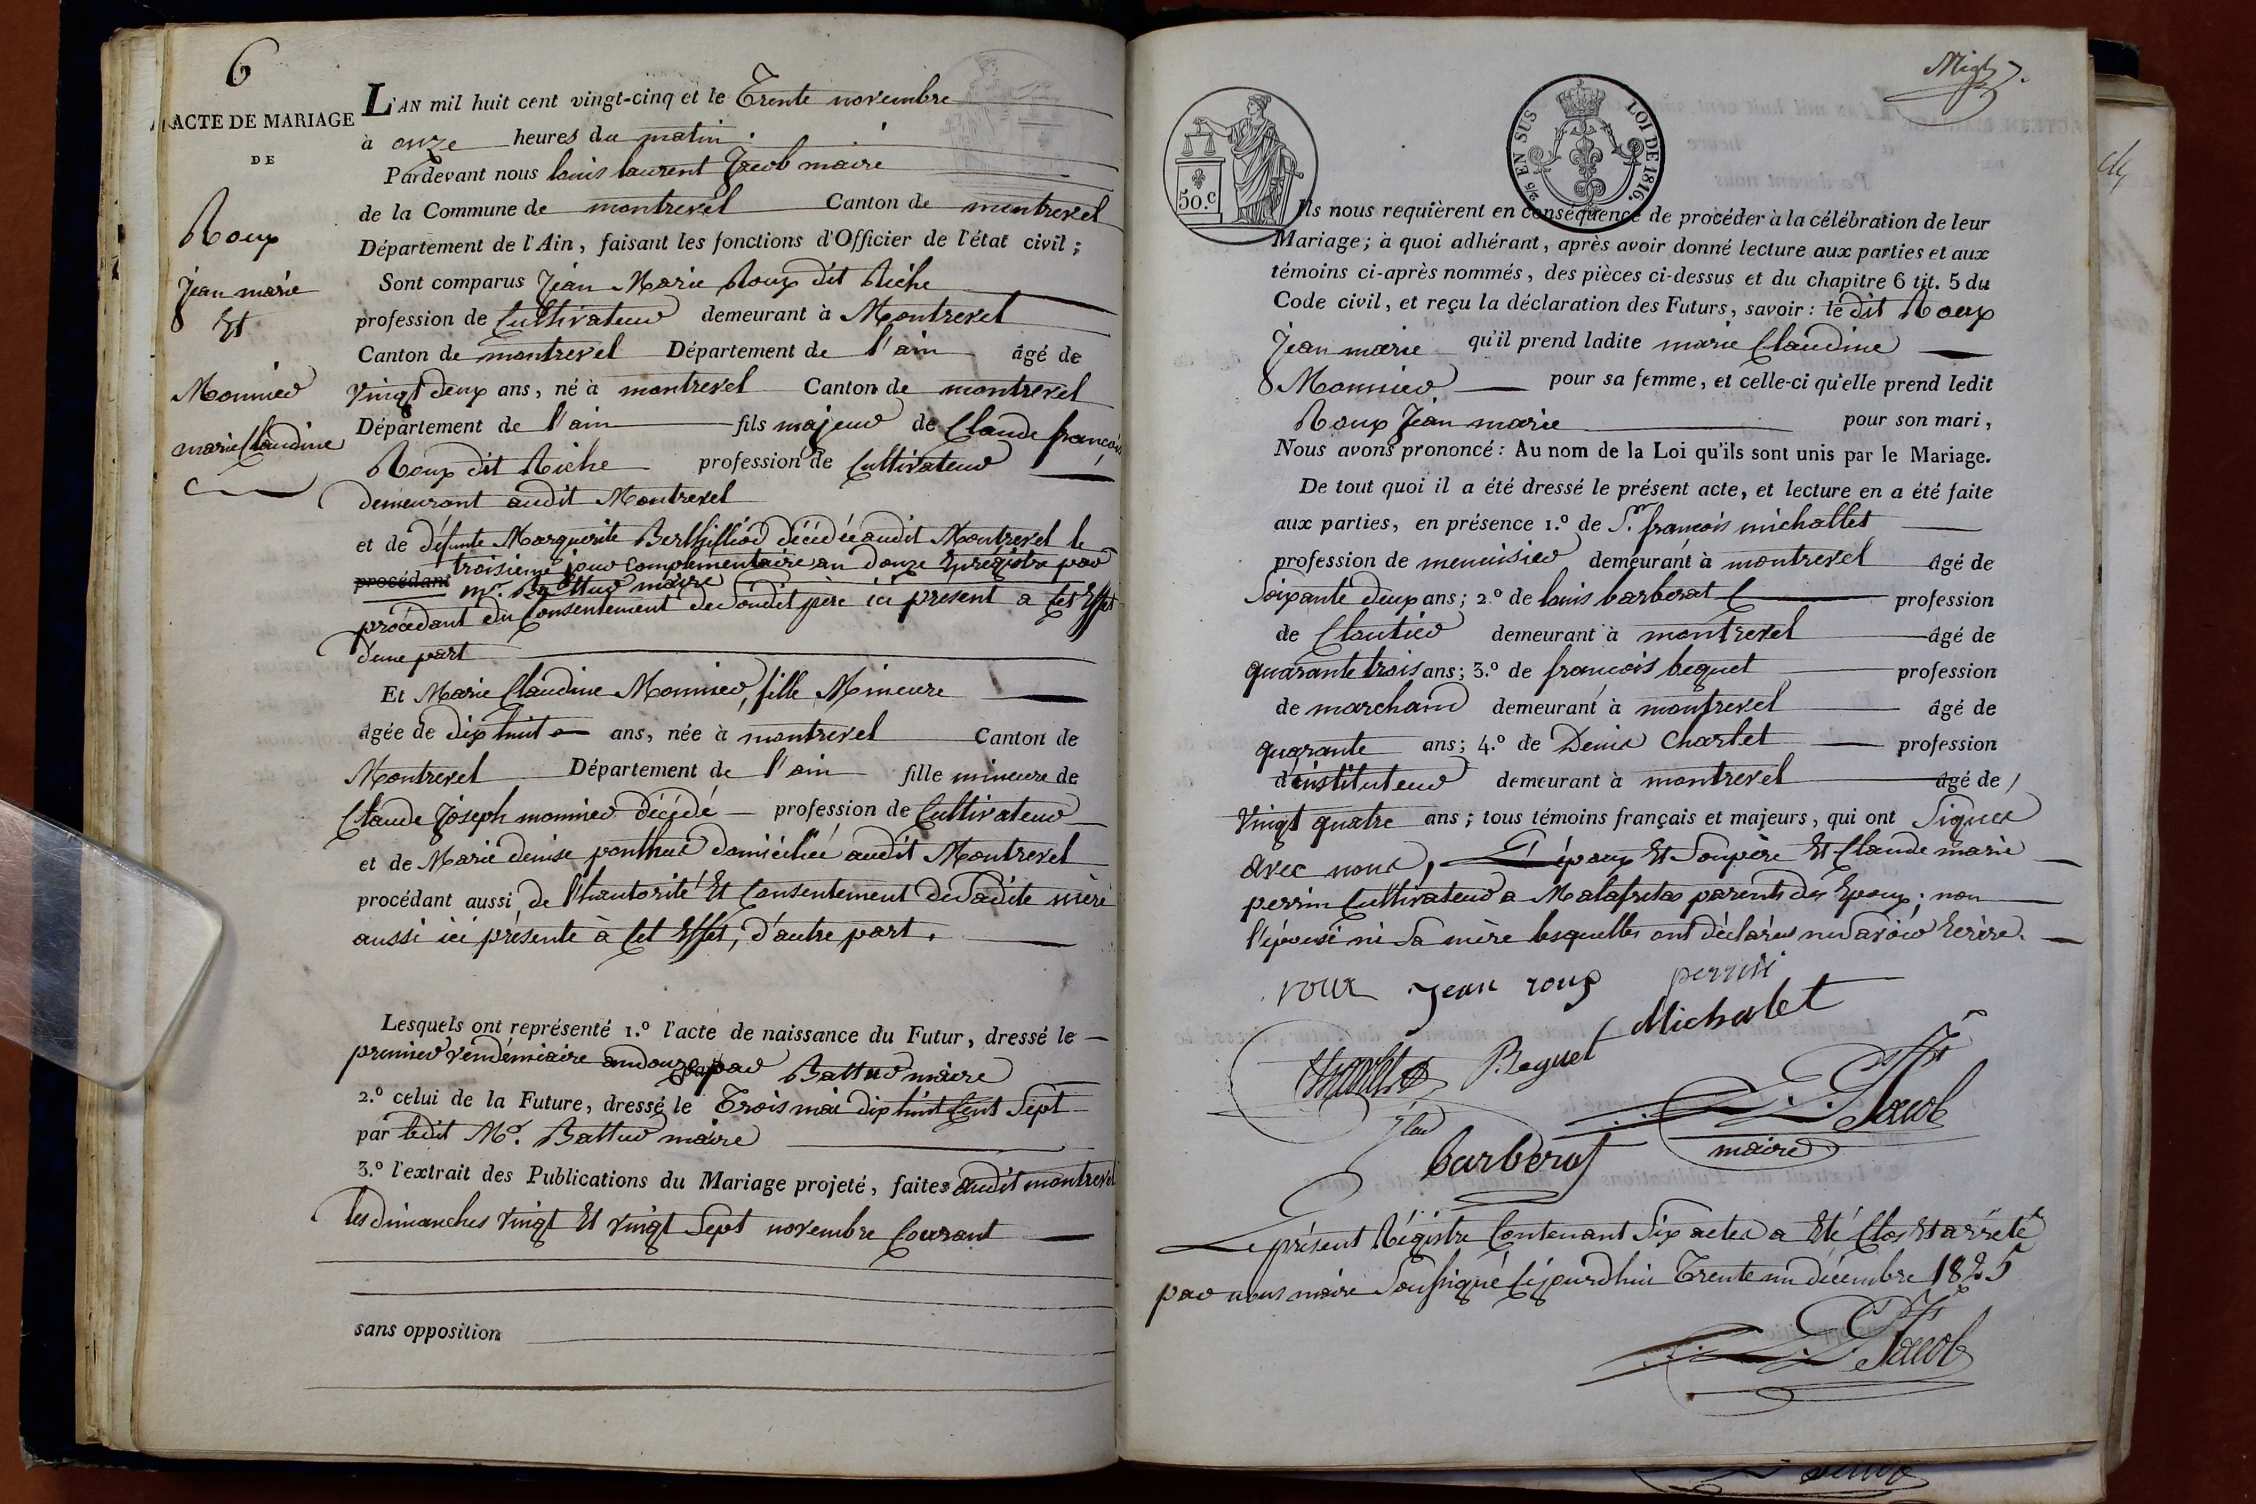 6
ACTE DE MARIAGE
DE
Roux
Jean marie
Et
Monnier
marie Claudine
L'AN mil huit cent vingt-cinq et le Trente novembre
à onze heures du matin
Pardevant nous louis laurent Jacob maire
de la Commune de montrevel Canton de montrevel
Département de l'Ain, faisant les fonctions d'Officier de l'état civil;
Sont comparus Jean Marie Roux dit Riche
profession de Cultivateur demeurant à Montrevel
Canton de montrevel Département de l'ain âgé de
vingt deux ans, né à montrevel Canton de montrevel
Département de l'ain fils majeur de Claude françois
Roux dit Riche profession de Cultivateur
demeurant audit Montrevel
et de défunte Marguerite Berthilliod décédée audit Montrevel le
troisieme jour Complementaire an douze Enregistré par
procédant mr. Battur maire
procédant du Consentement de Sondit père ici présent a Cet Effet
d'une part
Et Marie Claudine Monnier, fille Mineure
âgée de dix huit ans, née à montrevel Canton de
Montrevel Département de l'ain fille mineure de
Claude Joseph monnier décédé profession de Cultivateur
et de Marie denise ponthus domiciliée audit Montrevel
procédant aussi de l'hautorité Et Consentement de Sadite mère
aussi ici présente à Cet Effet, d'autre part.
Lesquels ont représenté 1.º l'acte de naissance du Futur, dressé le
premier vendémiaire an douze par Battur maire
2.º celui de la Future, dressé le Trois mai dix huit Cent Sept
par ledit Mr. Battur maire
3.º l'extrait des Publications du Mariage projeté, faites audit montrevel
les dimanches vingt Et vingt Sept novembre Courant
sans opposition
50.c
2/5 EN SUS
LOI DE 1816.
Ils nous requièrent en conséquence de procéder à la célébration de leur
Mariage; à quoi adhérant, après avoir donné lecture aux parties et aux
témoins ci-après nommés, des pièces ci-dessus et du chapitre 6 tit. 5 du
Code civil, et reçu la déclaration des Futurs, savoir: le dit Roux
Jean marie qu'il prend ladite marie Claudine
Monnier pour sa femme, et celle-ci qu'elle prend ledit
Roux Jean marie pour son mari,
Nous avons prononcé: Au nom de la Loi qu'ils sont unis par le Mariage.
De tout quoi il a été dressé le présent acte, et lecture en a été faite
aux parties, en présence 1.º de Sr. françois michallet
profession de menuisier demeurant à montrevel âgé de
Soixante deux ans; 2.º de louis barberat profession
de Cloutier demeurant à montrevel âgé de
quarante trois ans; 3.º de françois beguet profession
de marchand demeurant à montrevel âgé de
quarante ans; 4.º de Denis Charlet profession
d'instituteur demeurant à montrevel âgé de
vingt quatre ans; tous témoins français et majeurs, qui ont Signés
avec nous, L'époux Et Son père Et Claude marie
perrin Cultivateur a Malafretas parents des Epoux; non
l'épouse ni Sa mère lesquelles ont déclarés ne Savoir Ecrire.
roux Jean roux perrin
Michalet
Beguet
Jacob
maire
barberat
Le présent Régistre Contenant Six actes a Eté Clos Et arrêté
par nous maire Soussigné Cejourdhui Trente un décembre 1825
Jacob